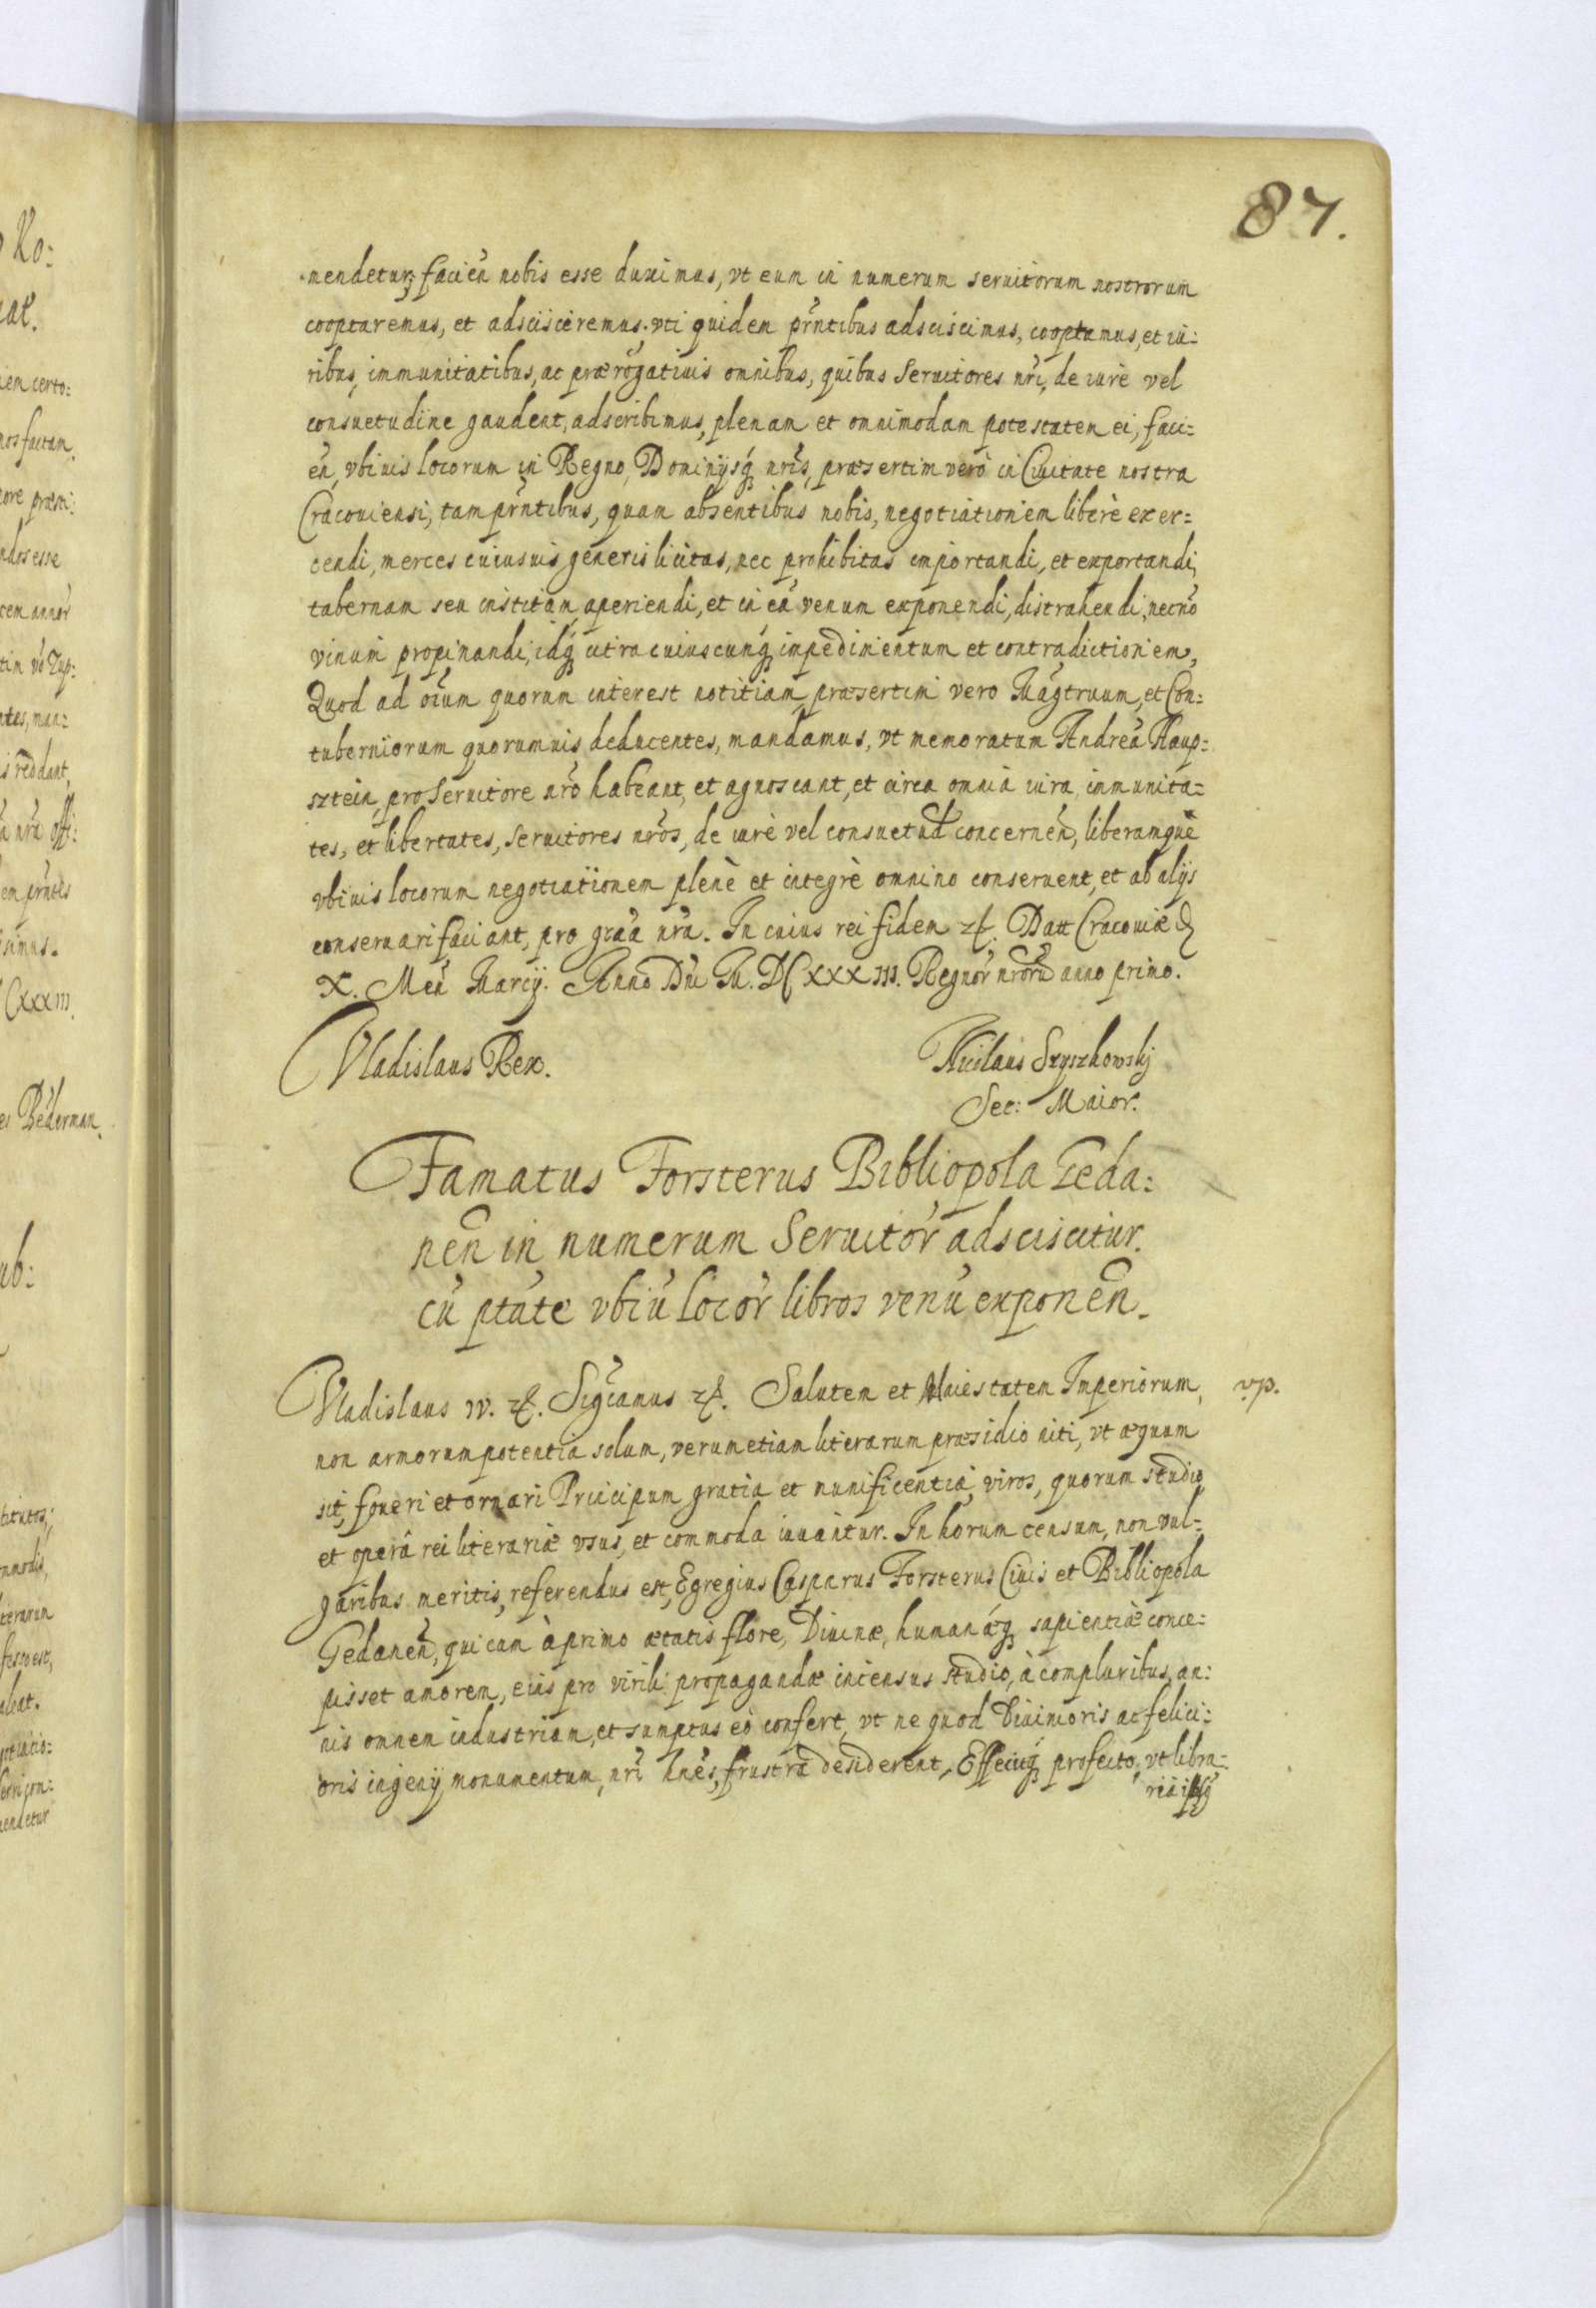 87.
mendetur, facien̄ nobis esse duximus, vt eum in numerum seruitorum nostrorum
cooptaremus, et adscisceremus. vti quidem pr̄ntibus adsciscimus, cooptamus, et iu:
ribus, immunitatibus, ac prærogatiuis omnibus, quibus Seruitores nr̄i, de iurè vel
consuetudine gaudent, adscribimus, plenam et omnimodam potestatem ei, faci:
en̄, vbiuis locorum in Regno, Dominijsq́ꝫ nr̄is, præsertim verò in Ciuitate nostra
Cracouiensi, tam pr̄ntibus, quam absentibus nobis, negotiationem liberè exer:
cendi, merces cuiusuis generis licitas, nec prohibitas importandi, et exportandi,
tabernam seu institam aperiendi, et in eā venum exponendi, distrahendi, necnō
vinum propinandi, idq́ꝫ citra cuiuscunq́ꝫ impedimentum et contradictionem.
Quod ad oīum quorum interest notitiam, præsertim vero Mag̃truum, et Con:
tuberniorum quorumuis deducentes, mandamus, vt memoratum Andreā Haup:
sztein pro Seruitore nr̄o habeant, et agnoscant, et circa omnia iura, immunita:
tes, et libertates, seruitores nr̄os, de iurè vel consuetud concernen̄, liberamquè
vbiuis locorum negotiationem plenè et integrè omnino conseruent, et ab alijs
conseruari faciant, pro gr̄aa nr̄a. In cuius rei fidem ꝛc. Datt Cracouiæ D
X. Men̄ Marcij. Anno Dn̄i M. DCXXXIII. Regnor̄ nr̄orū anno primo.
Vladislaus Rex.
Nicolaus Szyszkowskj
Sec: Maior.
Famatus Forsterus Bibliopola Geda:
nen̄ in numerum Seruitor̄ adsciscitur.
cū ptāte vbiū locor̄ libros venū exponen̄.
Vladislaus IV. ꝛc. Sig̃camus ꝛc. Salutem et Maiestatem Imperiorum,
vp.
non armorum potentia solum, verumetiam literarum præsidio niti, vt æquum
sit, foueri et ornari Principum gratia et munificentiâ, viros, quorum studio,
et operâ rei literariæ vsus, et commoda iuuantur. In horum censum, non vul:
garibus meritis, referendus est, Egregius Casparus Forsterus Ciuis et Bibliopola
Gedanen̄, qui cum à primo ætatis flore, Diuinæ, humanæq́ꝫ sapientiæ conce:
pisset amorem, eius pro virili propagandæ incensus studio, à compluribus an:
nis omnem industriam, et sumptus eò confert, vt ne quod Diuinioris ac felici:
oris ingenij monumentum, nr̄i hn̄es, frustrà desiderent. Effecitq́ꝫ profecto, vt libra: